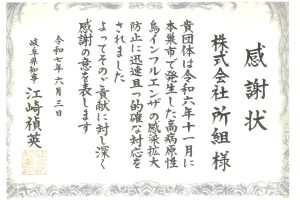 感謝状
株式会社所組様
貴団体は令和六年十一月に
本巣市で発生した高病原性
鳥インフルエンザの感染拡大
防止に迅速且つ的確な対応を
されました
よってそのご貢献に対し深く
感謝の意を表します
令和七年六月三日
岐阜県知事 江崎禎英